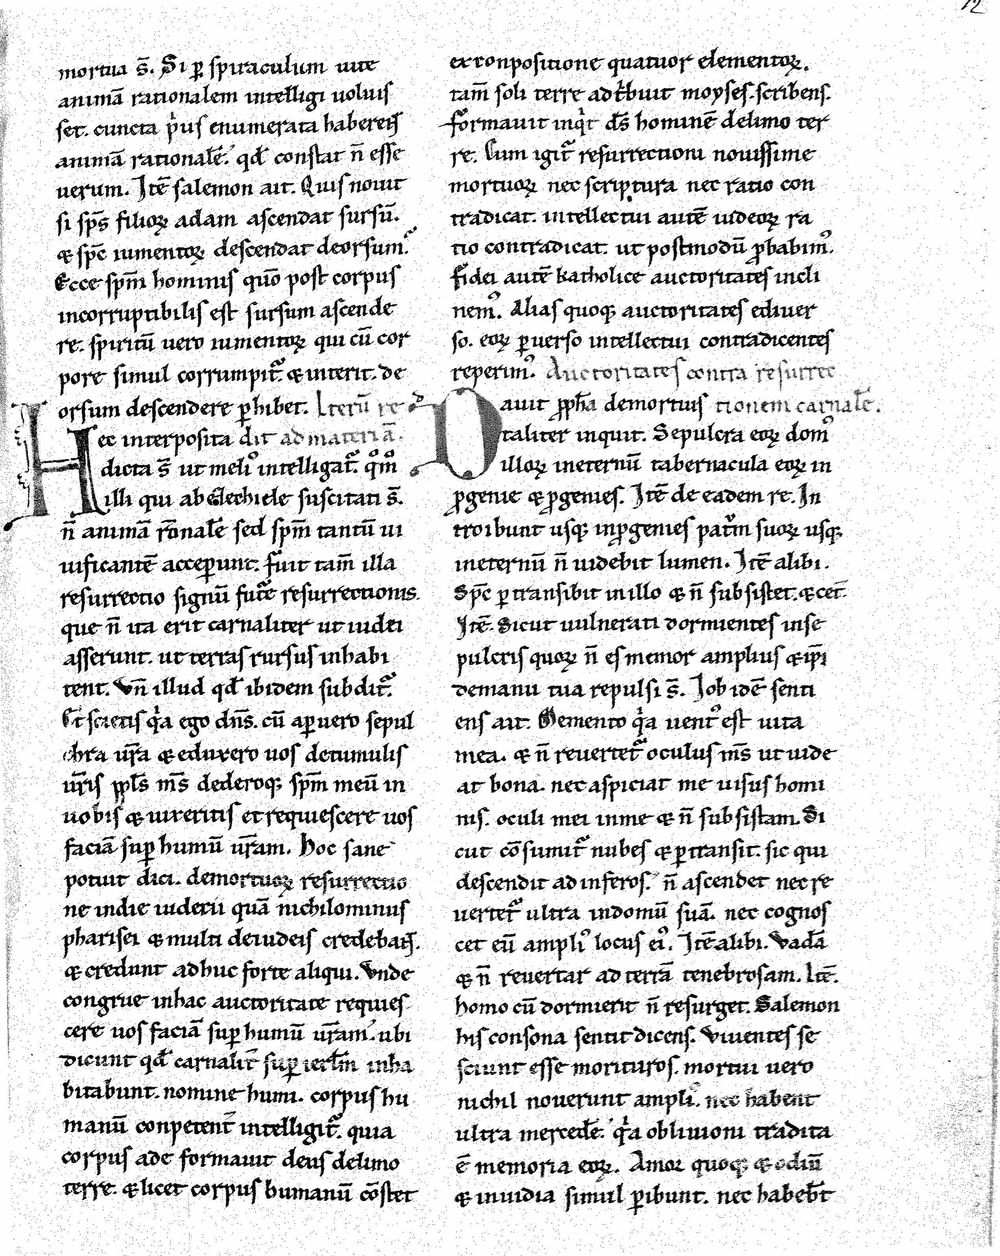 12
mortua s̄. Si ꝑ spiraculum uite
animā rationalem intelligi uoluis
set. cuncta p̍us enumerata haberēt
animā rationalē. qđ constat n̄ esse
uerum. Itē salemon ait. Quis nouit
si sp̄s filioꝝ adam ascendat sursū.
⁊ sp̄c iumentoꝝ descendat deorsum.
Ecce sp̄m hominis quō post corpus
incorruptibilis est sursum ascende
re. spiritū uero iumentoꝝ qui cū cor
pore simul corrumpit᷑ ⁊ interit. de
orsum descendere ꝑhibet. Iterū re
Hec interposita dit ad materiā.
dicta s̄ ut meliꝰ intelligat᷑. qm̄
illi qui ab Ezechiele suscitati s̄.
n̄ animā r̄onalē sed sp̄m tantū ui
uificantē acceꝑunt. fuit tam̄ illa
resurrectio signū fut᷑e resurrectionis.
que n̄ ita erit carnaliter ut iudei
asserunt. ut terras rursus inhabi
tent. Vn̄ illud qđ ibidem subdit᷑.
Et scietis q̍a ego dn̄s. cū aꝑuero sepul
chra ur̄a ⁊ eduxero uos detumulis
ur̄is ppl̄s m̄s dederoqꝫ sp̄m meū in
uobis ⁊ uixeritis et requiescere uos
faciā suꝑ humū ur̄am. Hoc sane
potuit dici. demortuoꝝ resurrectio
ne indie iudecii quā nichilominus
pharisei ⁊ multi deiudeis credebant.
⁊ credunt adhuc forte aliqui. Vnde
congrue inhac auctoritate requies
cere uos faciā suꝑ humū ur̄am. ubi
dicunt qđ carnalit̄ suꝑ ierl̄m inha
bitabunt. nomine humi. corpus hu
manū conpetent̄ intelligit᷑. quia
corpus ade formauit deus delimo
terre. ⁊ licet corpus humanū cōstet
ex conpositione quatuor elementoꝝ.
tam̄ soli terre adt̍buit moyses. scribens.
Formauit inq̍t ds̄ hominē delimo ter
re. Cum igit᷑ resurrectioni nouissime
mortuoꝝ nec scriptura nec ratio con
tradicat. intellectui autē iudeoꝝ ra
tio contradicat. ut postmodū ꝓbabimꝰ.
Fidei autē katholice auctoritates incli
nemꝰ. Alias quoqꝫ auctoritates ediuer
so. eoꝝ ꝑuerso intellectui contradicentes
reperimꝰ. Auctoritates contra resurrec
Dauit ꝓph̄a demortuis tionem carnalē.
taliter inquit. Sepulcra eoꝝ domꝰ
illoꝝ ineternū tabernacula eoꝝ in
ꝓgenie ⁊ ꝓgenies. Itē de eadem re. In
troibunt usqꝫ inꝓgenies pat̄m suoꝝ usqꝫ
ineternū n̄ uidebit lumen. Itē alibi.
Sp̄c ꝑtransibit inillo ⁊ n̄ subsistet. ⁊ cet̄.
Itē. Sicut uulnerati dormientes inse
pulcris quoꝝ n̄ es memor amplius ⁊ ip̄i
demanu tua repulsi s̄. Iob idē senti
ens ait. Memento q̍a uentꝰ est uita
mea. ⁊ n̄ reuertet᷑ oculus m̄s ut uide
at bona. nec aspiciat me uisus homi
nis. oculi mei inme ⁊ n̄ subsistam. Si
cut cōsumit᷑ nubes ⁊ ꝑtransit. sic qui
descendit ad inferos. n̄ ascendet nec re
uertet᷑ ultra indomū suā. nec cognos
cet eū ampliꝰ locus eiꝰ. Itē alibi. Vadā
⁊ n̄ reuertar ad terrā tenebrosam. Itē.
homo cū dormierit n̄ resurget. Salemon
his consona sentit dicens. Viuentes se
sciunt esse morituros. mortui uero
nichil nouerunt ampliꝰ. nec habent
ultra mercedē. q̍a obliuioni tradita
ē memoria eoꝝ. Amor quoqꝫ ⁊ odiū
⁊ inuidia simul ꝑibunt. nec habebt̄